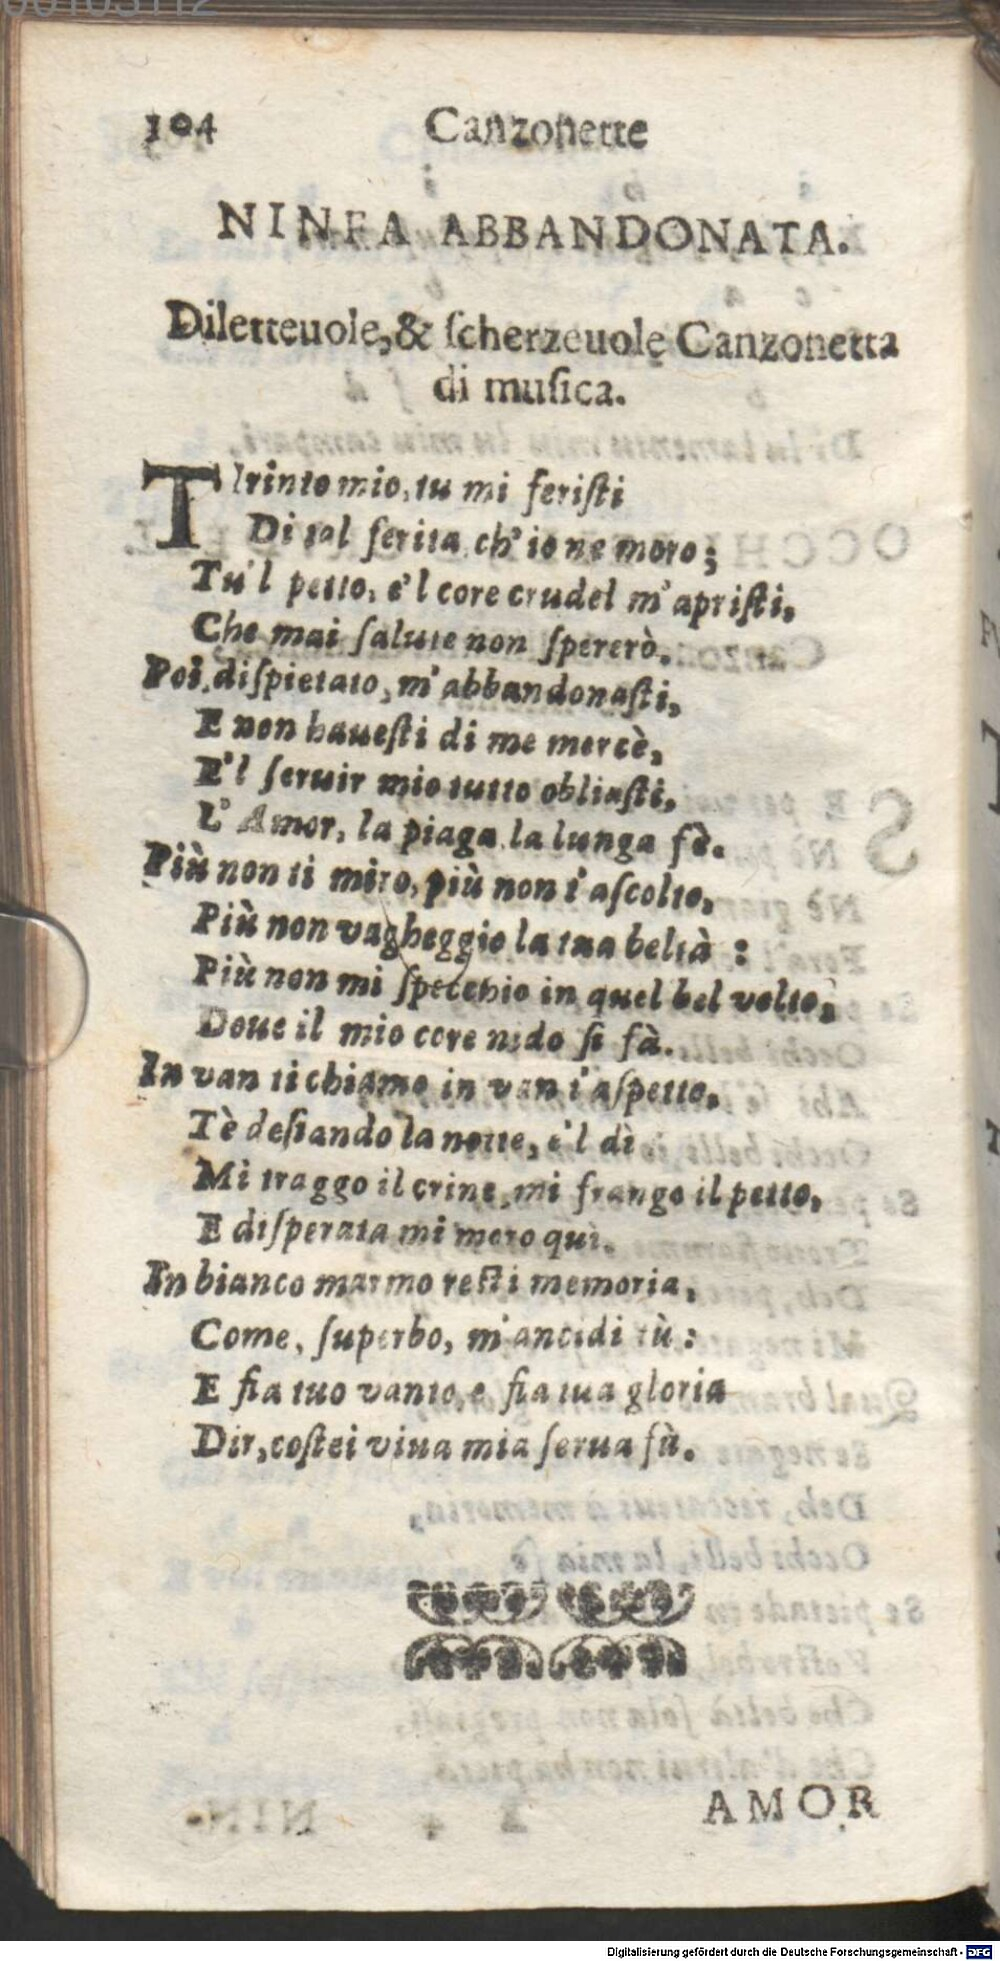 104 Canzonette
NINFA ABBANDONATA.
Diletteuole, & ſcherzeuole Canzonetta
di muſica.
Tlrinto mio, tu mi feriſti
Di tal ferita ch' io ne moro;
Tu'l petto, e'l core crudel m'apriſti,
Che mai ſalute non ſpererò.
Poi, diſpietato, m'abbandonaſti,
E non haueſti di me mercè,
E'l ſeruir mio tutto obliaſti,
L'Amor, la piaga la lunga fè.
Più non ti miro, più non t'aſcolto,
Più non vagheggio la tua beltà:
Più non mi ſpecchio in quel bel volto,
Doue il mio core nido ſi fà.
In van ti chiamo in van t'aſpetto,
Tè deſiando la notte, e'l dì
Mi traggo il crine, mi frango il petto,
E diſperata mi moro quì.
In bianco marmo reſti memoria,
Come, ſuperbo, m'ancidi tù:
E fia tuo vanto e fia tua gloria
Dir, coſtei viua mia ſerua fù.
AMOR
Digitalisierung gefördert durch die Deutsche Forschungsgemeinschaft - DFG